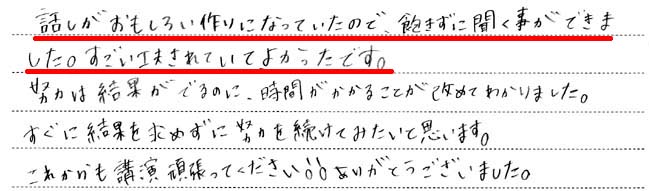 話しがおもしろい作りになっていたので、飽きずに聞く事ができま
した。すごい工夫されていてよかったです。
努力は結果がでるのに、時間がかかることが改めてわかりました。
すぐに結果を求めずに努力を続けてみたいと思います。
これからも講演頑張ってください!!ありがとうございました。